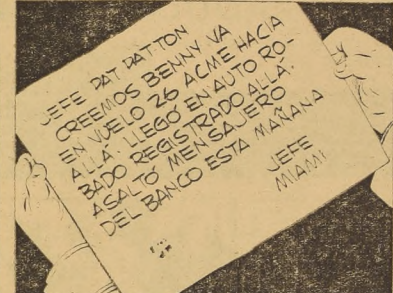 JEFE PAT PATTON
CREEMOS BENNY VA
EN VUELO 26 ACME HACIA
ALLÁ. LLEGÓ EN AUTO RO-
BADO REGISTRADO ALLÁ.
ASALTÓ MENSAJERO
DEL BANCO ESTA MAÑANA
JEFE
MIAMI